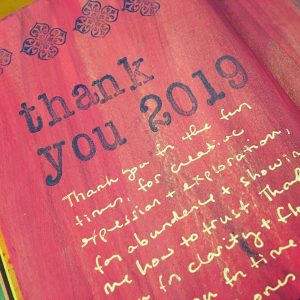 thank
you 2019
Thank you for the fun
times, for creative
expression + exploration,
for abundance + showin
me how to trust. Thank
for clarity + fl
for time